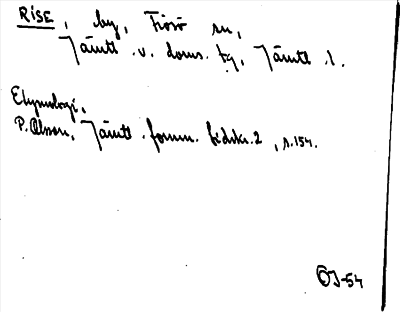 RISE, by, Frösö sn,
Jämtl. v. doms. tg, Jämtl. l.
Etymologi,
P. Olsson, Jämtl. fornm. tidskr. 2, s. 154.
ÖJ-54